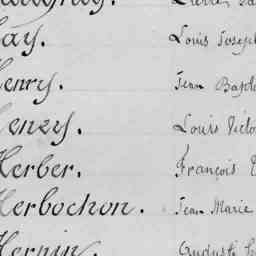 ay. Louis Joseph
enry. Jean Bapt
enzy. Louis Victo
Herber. François
Herbochon. Jean Marie
Hernin. Auguste